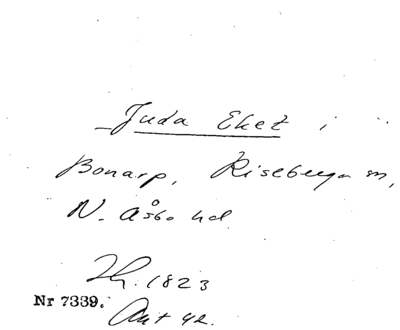 Juda Eket i
Bonarp, Riseberga sn,
N. Åsbo hd.
Th. 1823
Nr 7339.
Ant 42.